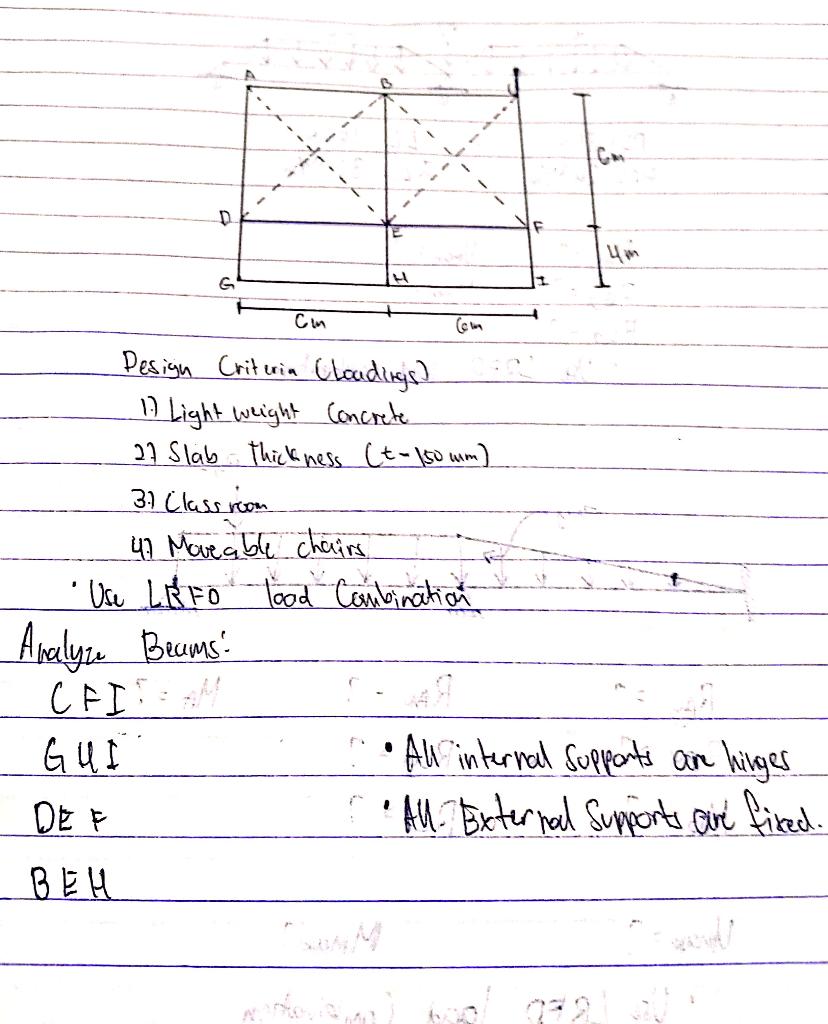 A B C
6m
D E F
4m
G H I
6m 6m
Design Criteria (Loadings)
1.) Light weight Concrete
2.) Slab Thickness (t - 150 mm)
3.) Classroom
4.) Moveable chairs
• Use LRFD load Combination
Analyze Beams:
CFI
GHI • All internal supports are hinges
DEF • All External Supports are fixed.
BEH